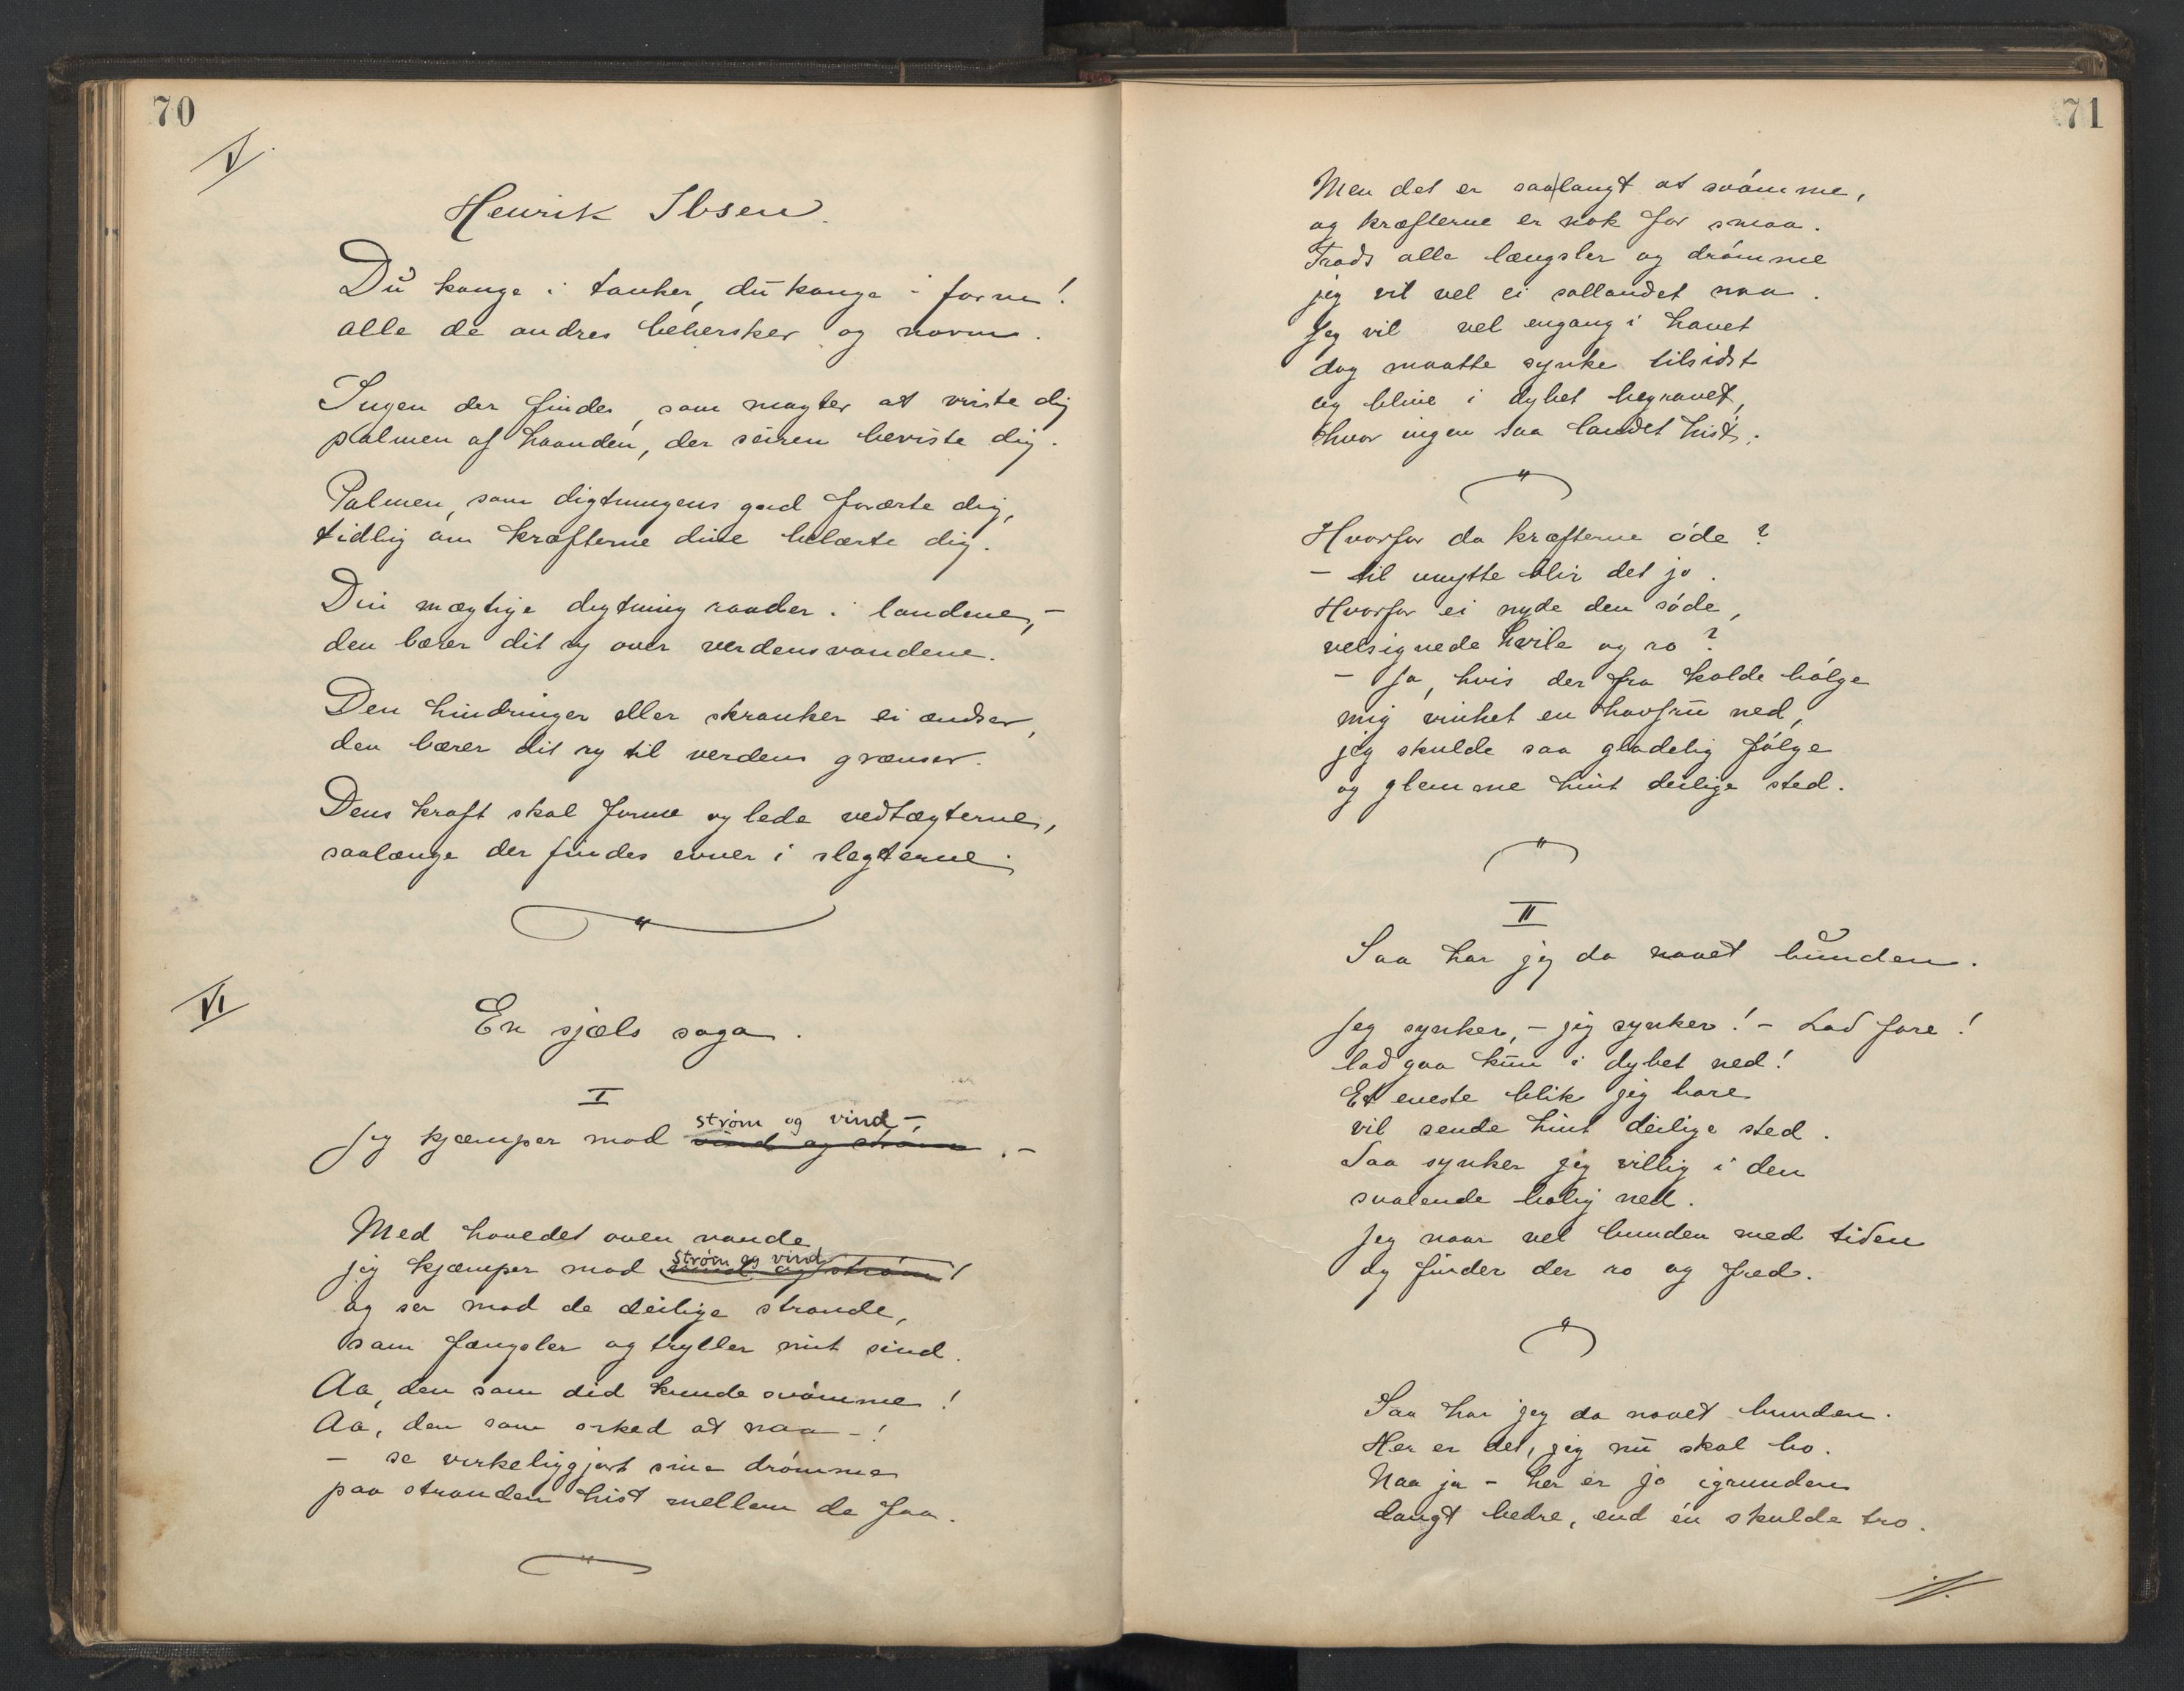 70
V
Henrik Ibsen.
Du konge i tanker, du konge i form!
alle de andres behersker og norm.
Ingen der findes, som magter at vriste dig
palmen af haanden, der seiren beviste dig.
Palmen, som digtningens gud forærte dig,
tidlig om kræfterne dine belærte dig.
Din mægtige digtning raader i landene, -
den bærer dit ry over verdensvandene.
Den hindringer eller skranker ei ændser,
den bærer dit ry til verdens grænser.
Dens kraft skal forme og lede vedtægterne,
saalænge der findes evner i slægterne.
VI
En sjæls saga.
I
strøm og vind -
Jeg kjæmper mod vind og strøm . -
Med hovedet oven vande
strøm og vind
jeg kjæmper mod vind og strøm!
og ser mod de deilige strande,
som fængsler og tryller mit sind.
Aa, den som did kunde svømme!
Aa, den som orked at naa - !
- se virkeliggjort sine drømme
paa stranden hist mellem de faa.
71
Men det er saa langt at svømme,
og kræfterne er nok for smaa.
Trods alle længsler og drømme
jeg vil vel ei sollandet naa.
Jeg vil vel engang i havet
dog maatte synke tilsidst
og blive i dybet begravet,
hvor ingen saa landet hist.
Hvorfor da kræfterne øde?
- til unytte blir det jo.
Hvorfor ei nyde den søde,
velsignede hvile og ro?
- Ja, hvis der fra kolde bølge
mig vinket en havfru ned,
jeg skulde saa gladelig følge
og glemme hint deilige sted.
II
Saa har jeg da naaet bunden.
Jeg synker, - jeg synker! - Lad fare!
lad gaa kun i dybet ned!
Et eneste blik jeg bare
vil sende hint deilige sted.
Saa synker jeg villig i den
svalende bolig ned.
Jeg naar vel bunden med tiden
og finder der ro og fred.
Saa har jeg da naaet bunden.
Her er det, jeg nu skal bo.
Naa ja - her er jo igrunden
langt bedre, end én skulde tro.